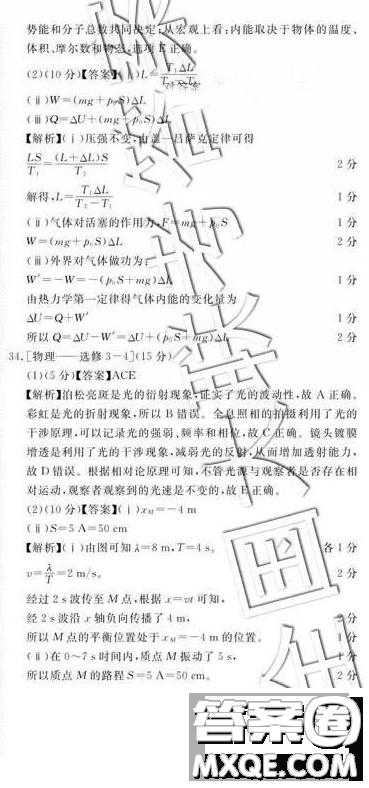 势能和分子总数共同决定;从宏观上看:内能取决于物体的温度、
体积、摩尔数和物态,选项E正确。
(2)(10分)【答案】(ⅰ)L=T₁ΔL/(T₂-T₁)
(ⅱ)W=(mg+p₀S)ΔL
(ⅲ)Q=ΔU+(mg+p₀S)ΔL
【解析】(ⅰ)压强不变,由盖—吕萨克定律可得
LS/T₁=(L+ΔL)S/T₂ 2分
解得,L=T₁ΔL/(T₂-T₁) 1分
(ⅱ)气体对活塞的作用力,F=mg+p₀S 1分
W=(mg+p₀S)ΔL 2分
(ⅲ)外界对气体做功为:
W'=-W=-(p₀S+mg)ΔL 1分
由热力学第一定律得气体内能的变化量为
ΔU=Q+W' 1分
所以Q=ΔU-W'=ΔU+(p₀S+mg)ΔL 2分
34.[物理——选修3-4](15分)
(1)(5分)【答案】ACE
【解析】泊松亮斑是光的衍射现象,证实了光的波动性,故A正确。
彩虹是光的折射现象,所以B错误。全息照相的拍摄利用了光的
干涉原理,可以记录光的强弱、频率和相位,故C正确。镜头镀膜
增透是利用了光的干涉现象,减弱光的反射,从而增加透射能力,
故D错误。根据相对论原理可知,不管光源与观察者是否存在相
对运动,观察者观察到的光速是不变的,故E正确。
(2)(10分)【答案】(ⅰ)x_M=-4 m
(ⅱ)S=5 A=50 cm
【解析】(ⅰ)由图可知λ=8 m,T=4 s。 各1分
v=λ/T=2 m/s。 2分
经过2 s波传至M点,根据x=vt可知,
经2 s波沿x轴负向传播了4 m, 2分
所以M点的平衡位置处于x_M=-4 m的位置。 1分
(ⅱ)在0~7 s时间内,质点M振动了5 s, 1分
所以质点M的路程S=5 A=50 cm。 2分
答案圈
MXQE.COM